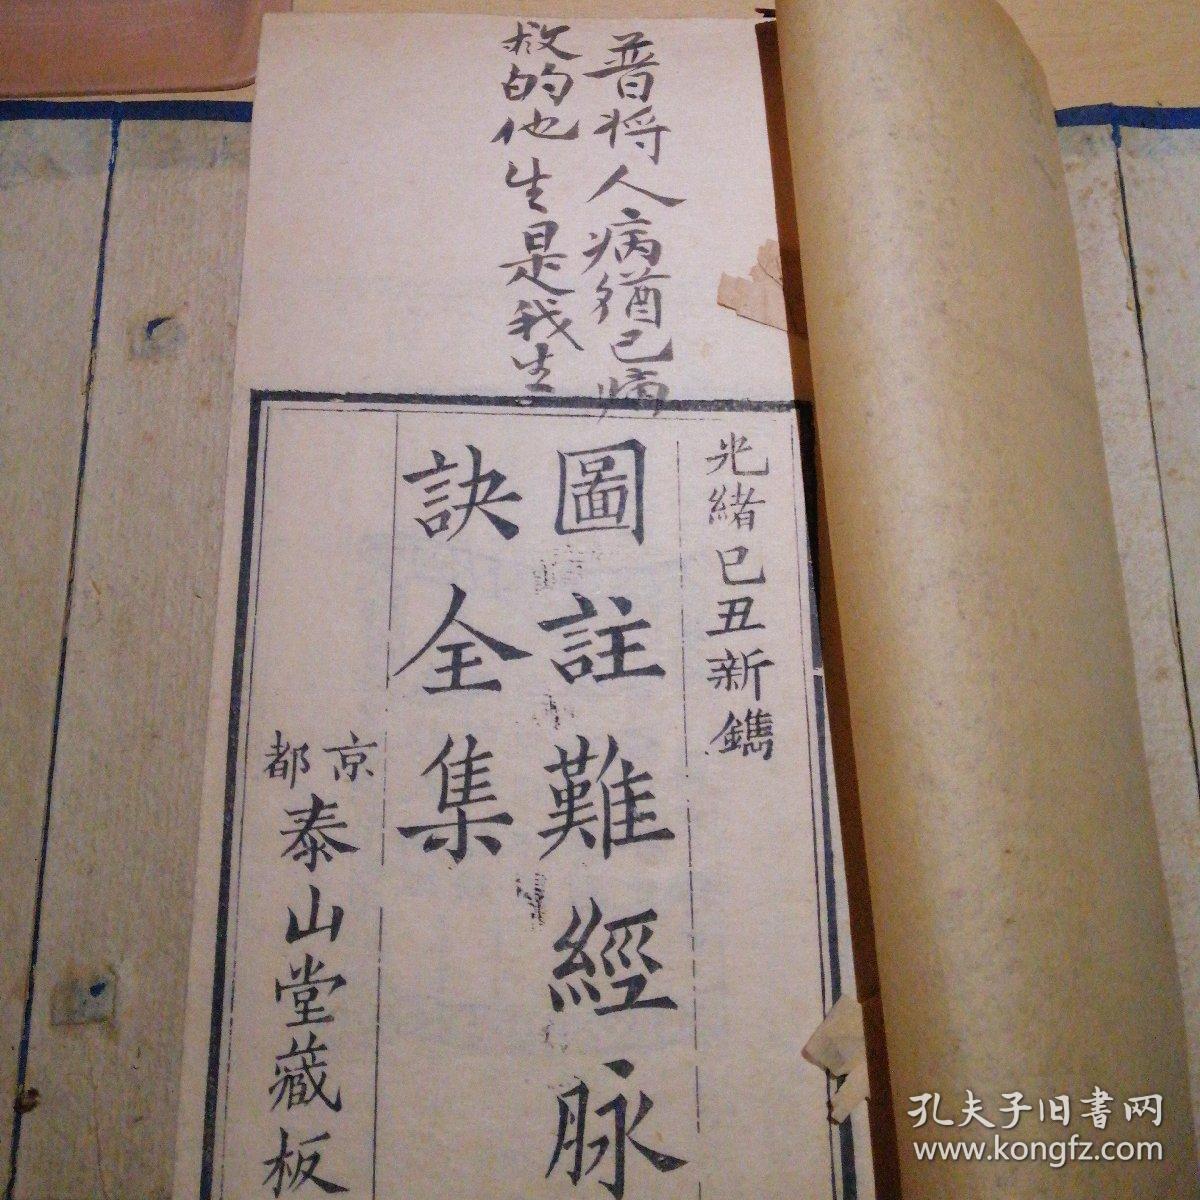 普将人病猶己病
救的他生是我生
光緒己丑新鐫
圖註難經脉
訣全集
京都
泰山堂藏板
孔夫子旧書网
www.kongfz.com